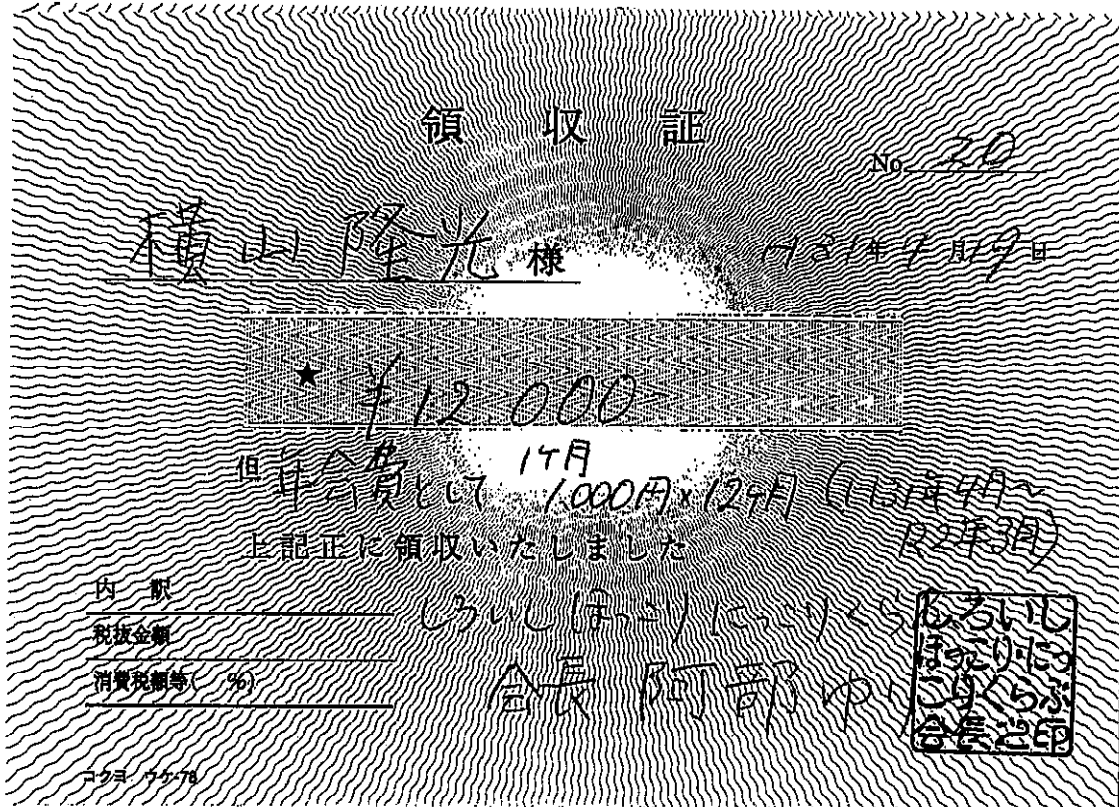 領収証
No. 20
横山隆光 様
H31年4月19日
★ ¥12,000
1ヶ月
但 年会費として 1,000円×12ヶ月 (H31年4月~
R2年3月)
上記正に領収いたしました
内訳
税抜金額
消費税額等( %)
しろいしほっこりにっこりくら
会長 阿部ゆ
しろいし
ほっこりにっ
こりくらぶ
会長之印
コクヨ ウケ-78